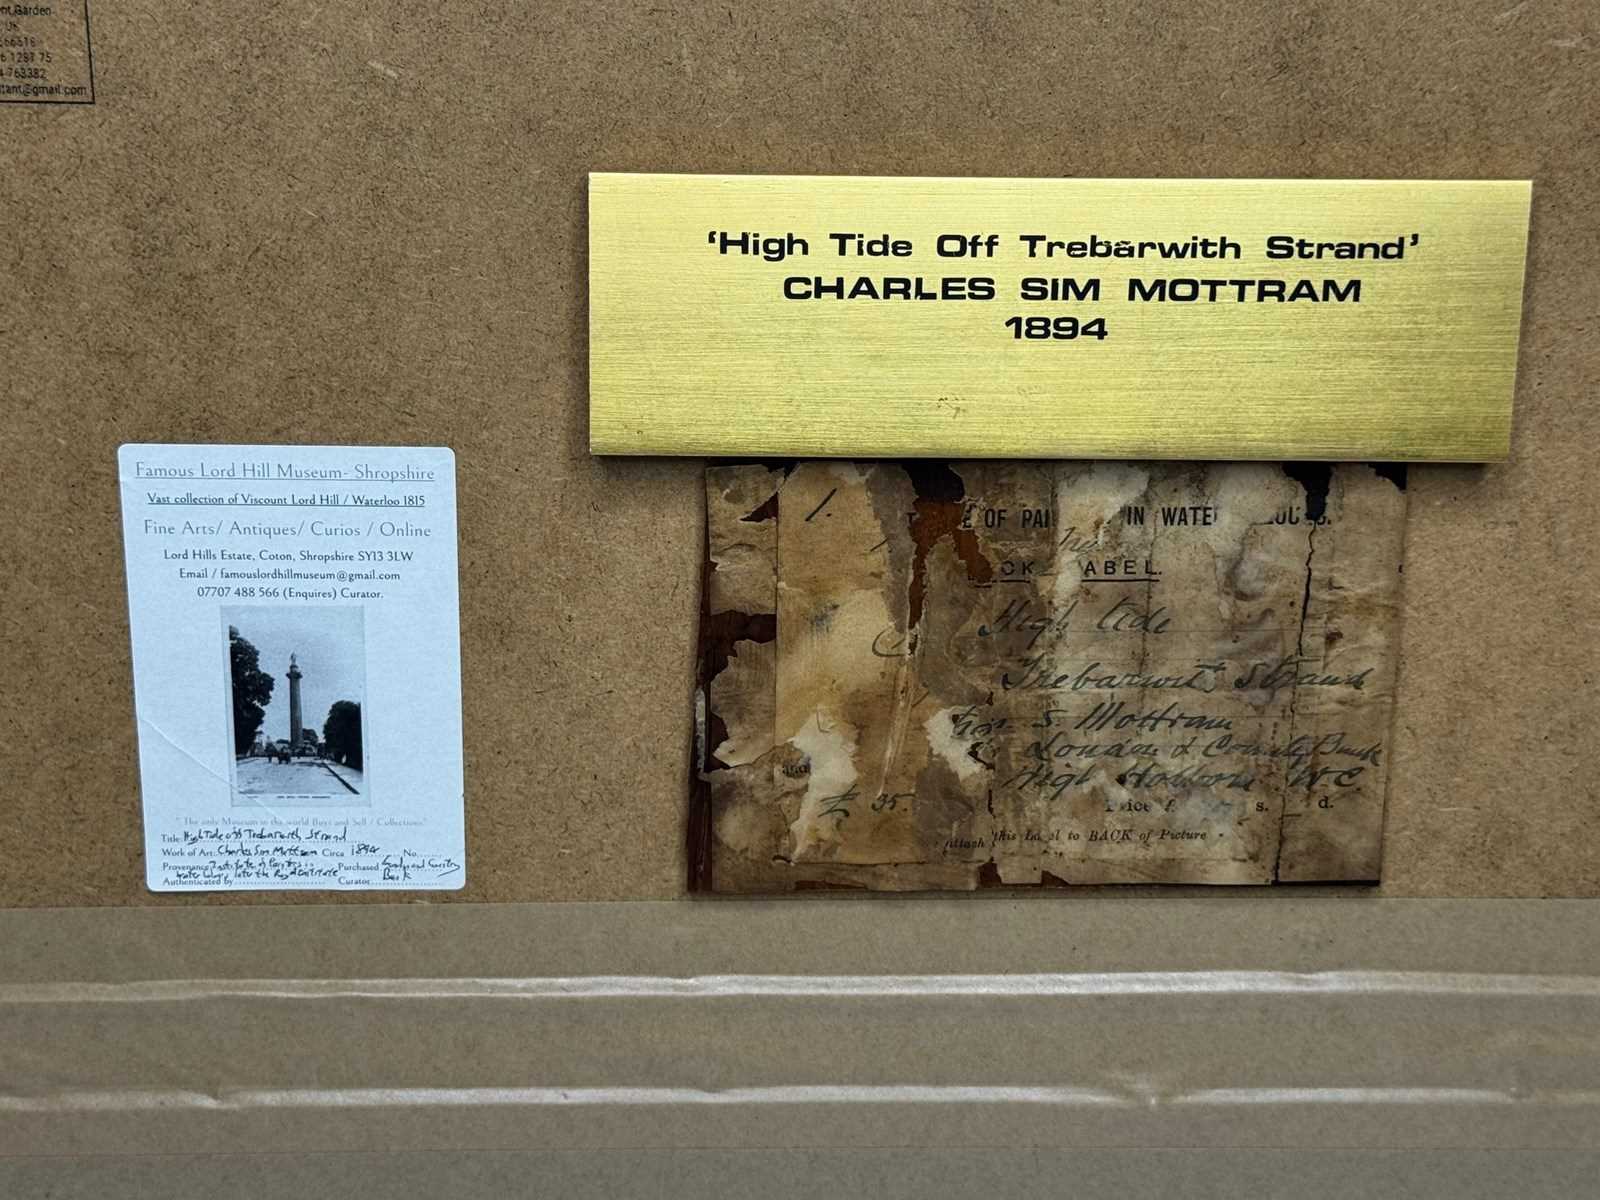 nt Garden
UK
66616
6 1281 75
4 763382
tant@gmail.com
'High Tide Off Trebarwith Strand'
CHARLES SIM MOTTRAM
1894
Famous Lord Hill Museum- Shropshire
Vast collection of Viscount Lord Hill / Waterloo 1815
Fine Arts/ Antiques/ Curios / Online
Lord Hills Estate, Coton, Shropshire SY13 3LW
Email / famouslordhillmuseum@gmail.com
07707 488 566 (Enquires) Curator.
" The only Museum in the world Buys and Sell / Collections"
Title High Tide off Trebarwith Strand
Work of Art. Charles Sim Mottram Circa 1894 No.
Provenance Institute of Purchased
Water later the Royal Institute
Authenticated by Curator
1.
E OF PAI IN WATE LOU S.
OCK ABEL.
High tide
Trebarwith Strand
S. Mottram
London & County Bank
High Holborn W.C.
and
£ 35.
Price £ s. d.
Attach this La el to BACK of Picture